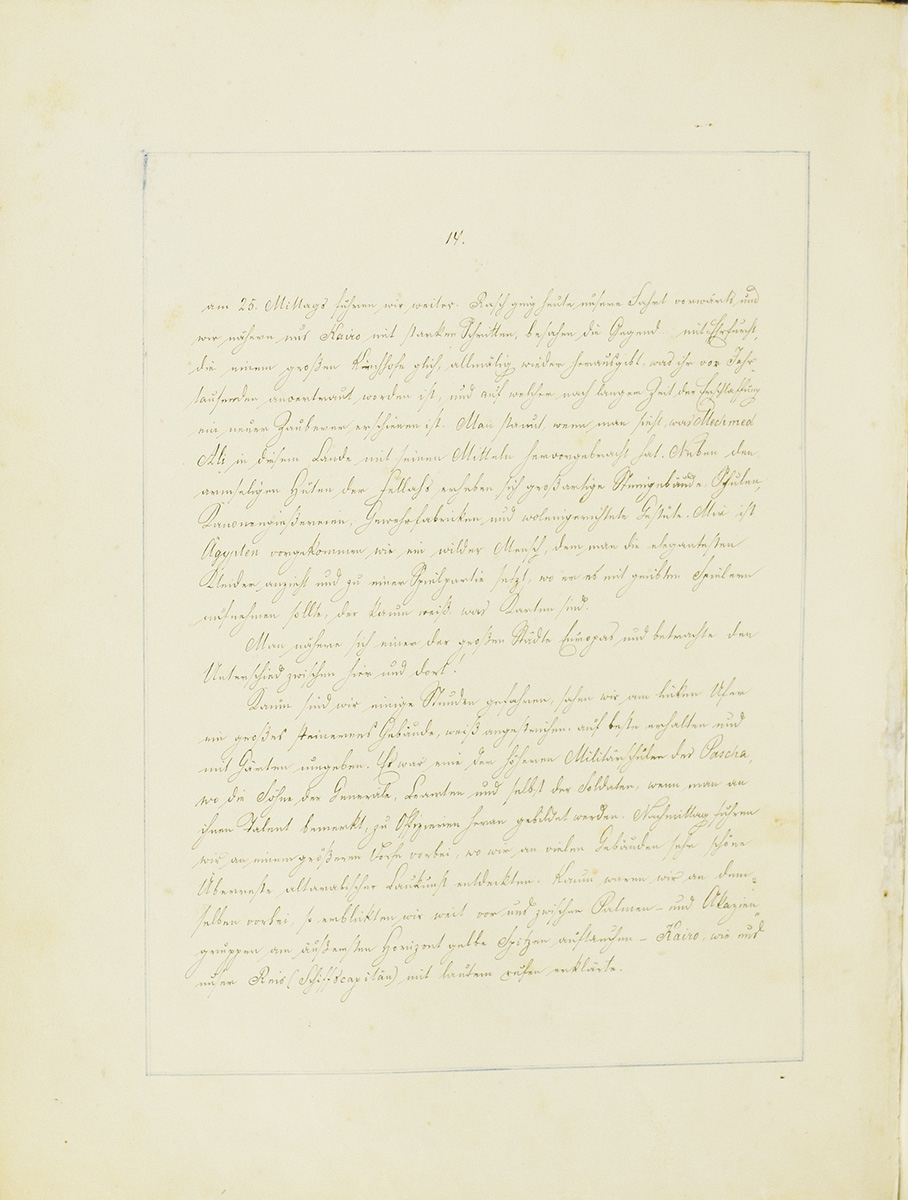 14.
am 25. Mittags fuhren wir weiter. Rasch ging heute unsere Fahrt vorwärts und
wir nähern uns Kairo mit starken Schritten, besahen die Gegend mit Ehrfurcht,
die einem großen Kirchhofe glich, allmälig wieder herausgibt, was ihr vor Jahr-
tausenden anvertraut worden ist, und auf welcher nach langer Zeit der Erschlaffung
ein neuer Zauberer erschienen ist. Man staunt, wenn man sieht, was Mechmed
Ali in diesem Lande mit seinen Mitteln hervorgebracht hat. Neben den
armseligen Hüten der Fellahs erheben sich großartige Steingebäude, Schulen,
Kanonengießereien, Gewehrfabricken und woleingerichtete Gestüte. Mir ist
Ägypten vorgekommen wie ein wilder Mensch, dem man die elegantesten
Kleider anzieht und zu einer Spielpartie setzt, wo er es mit geübten Spielern
aufnehmen sollte, der kaum weiß was Karten sind.
Man nähere sich einer der großen Städte Europas und betrachte den
Unterschied zwischen hier und dort!
Kaum sind wir einige Stunden gefahren, sahen wir am linken Ufer
ein großes steinernes Gebäude, weiß angestrichen, aufs beste erhalten und
mit Gärten umgeben. Es war eine der höheren Militärschulen des Pascha,
wo die Söhne der Generäle, Beamten und selbst der Soldaten, wenn man an
ihnen Talent bemerkt, zu Offizieren heran gebildet werden. Nachmittag fuhren
wir an einem größeren Dorfe vorbei, wo wir an vielen Gebäuden sehr schöne
Überreste altarabischer Baukunst entdeckten. Kaum waren wir an dem-
selben vorbei, so erblickten wir weit vor uns zwischen Palmen- und Akazien
gruppen am äußersten Horizont gelbe Spitzen auftauchen – Kairo, wie uns
unser Reis (Schiffscapitän) mit lautem rufen erklärte.